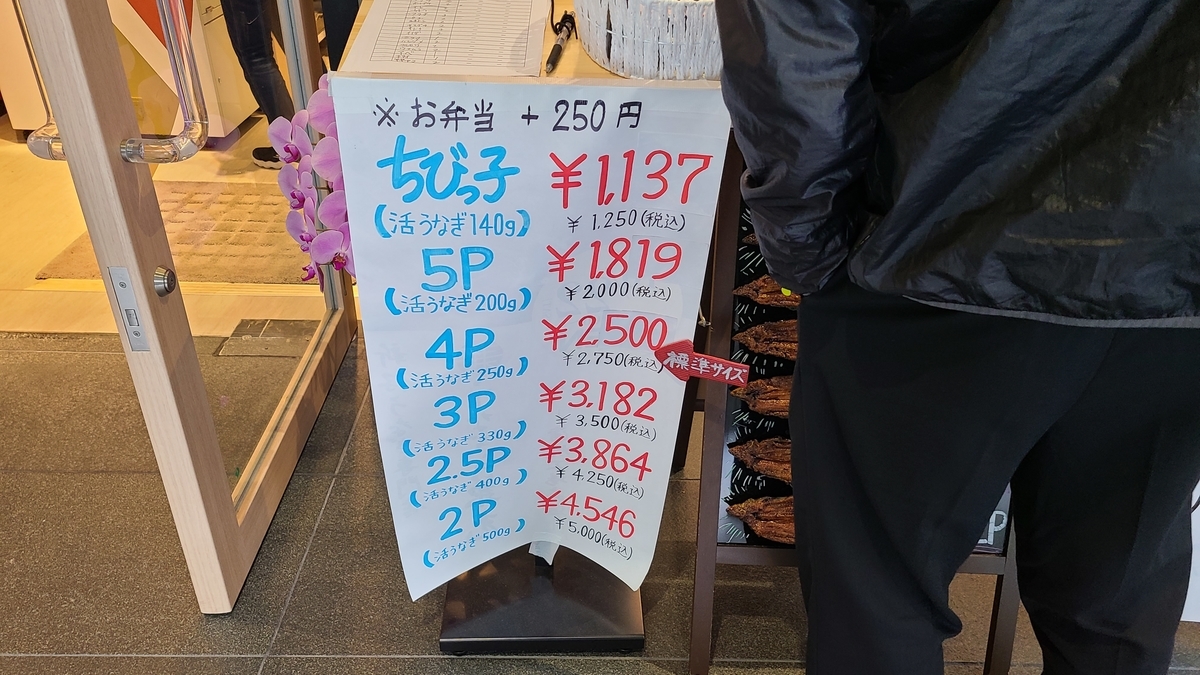 ※お弁当 + 250円
ちびっ子 ¥1,137
(活うなぎ140g) ¥1,250(税込)
5P ¥1,819
(活うなぎ200g) ¥2,000(税込)
4P ¥2,500
(活うなぎ250g) ¥2,750(税込)
標準サイズ
3P ¥3,182
(活うなぎ330g) ¥3,500(税込)
2.5P ¥3,864
(活うなぎ400g) ¥4,250(税込)
2P ¥4,546
(活うなぎ500g) ¥5,000(税込)